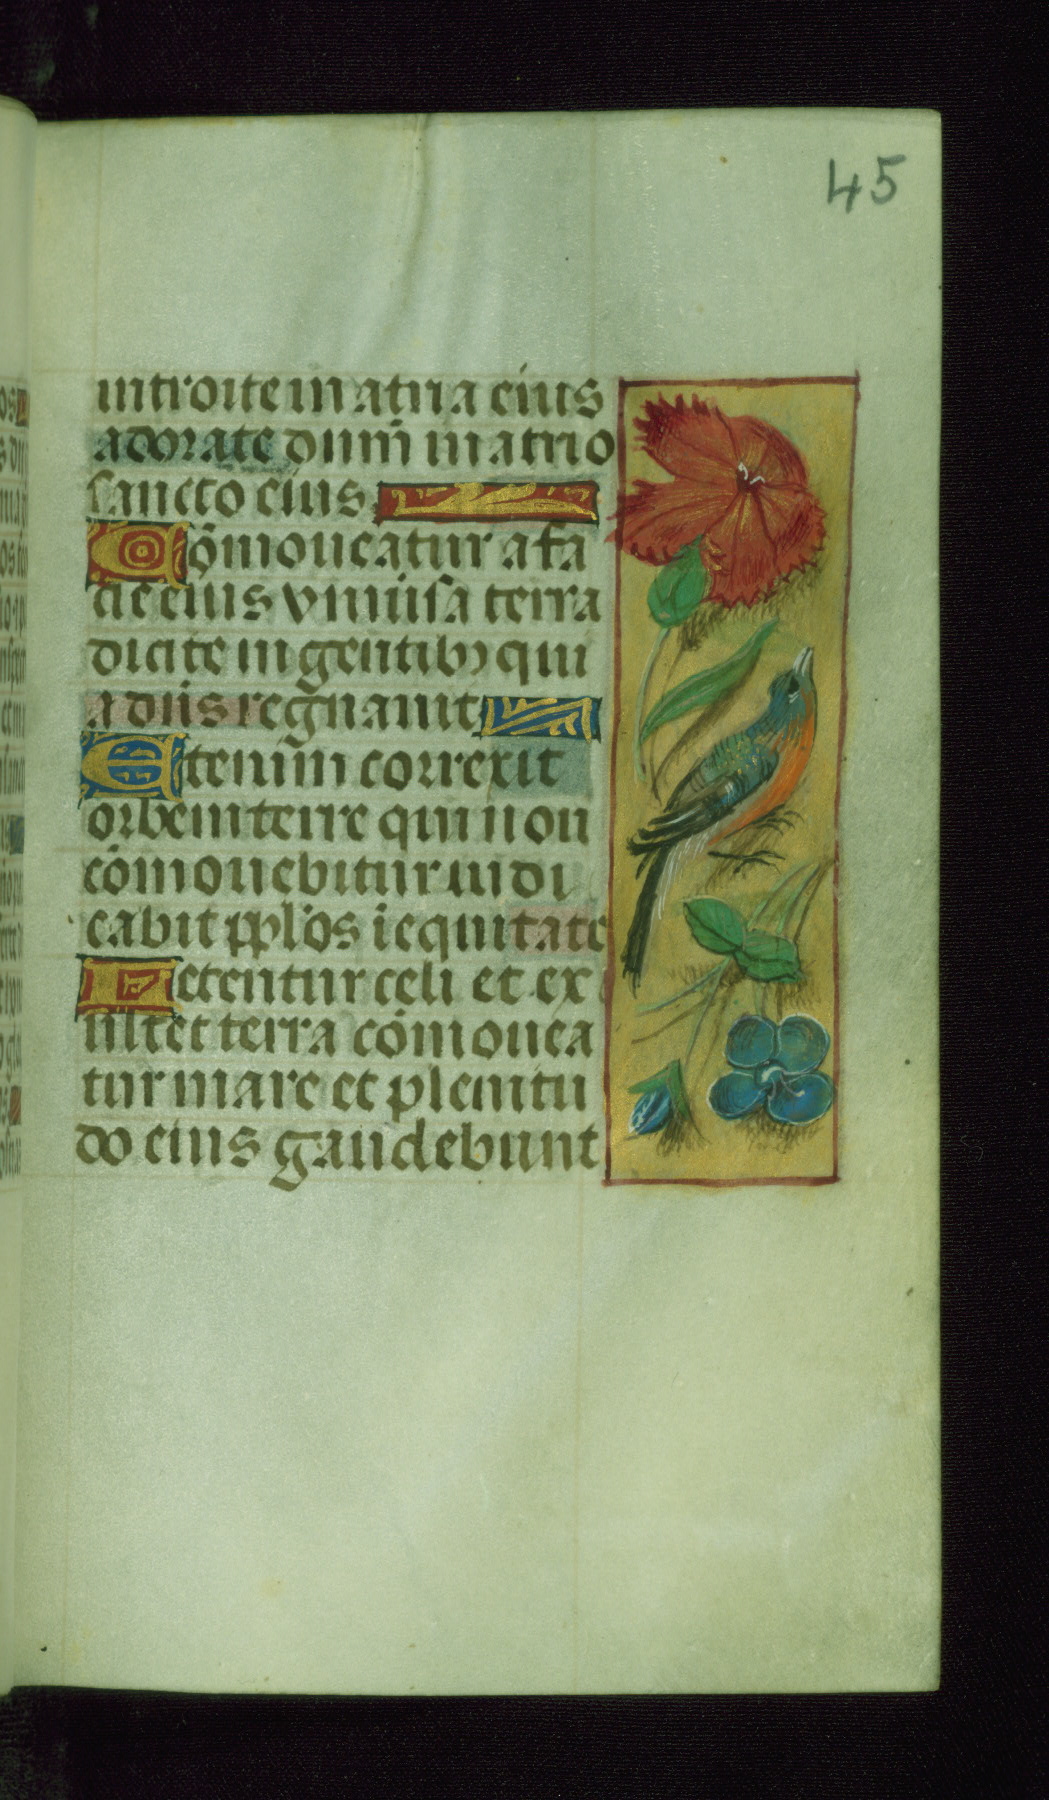 45
introite in atria eius
adorate dum̄ in atrio
sancto eius
Cōmoueatur a fa
cie eius vniu̇sa terra
dicite in gentibꝫ qui
a dn̄s regnauit
Etenim̄ correxit
orbem terre qui non
cōmouebitur iudi
cabit pp̄los ī equitate
Letentur celi et ex
ultet terra cōmouea
tur mare et plenitu
do eius gaudebunt